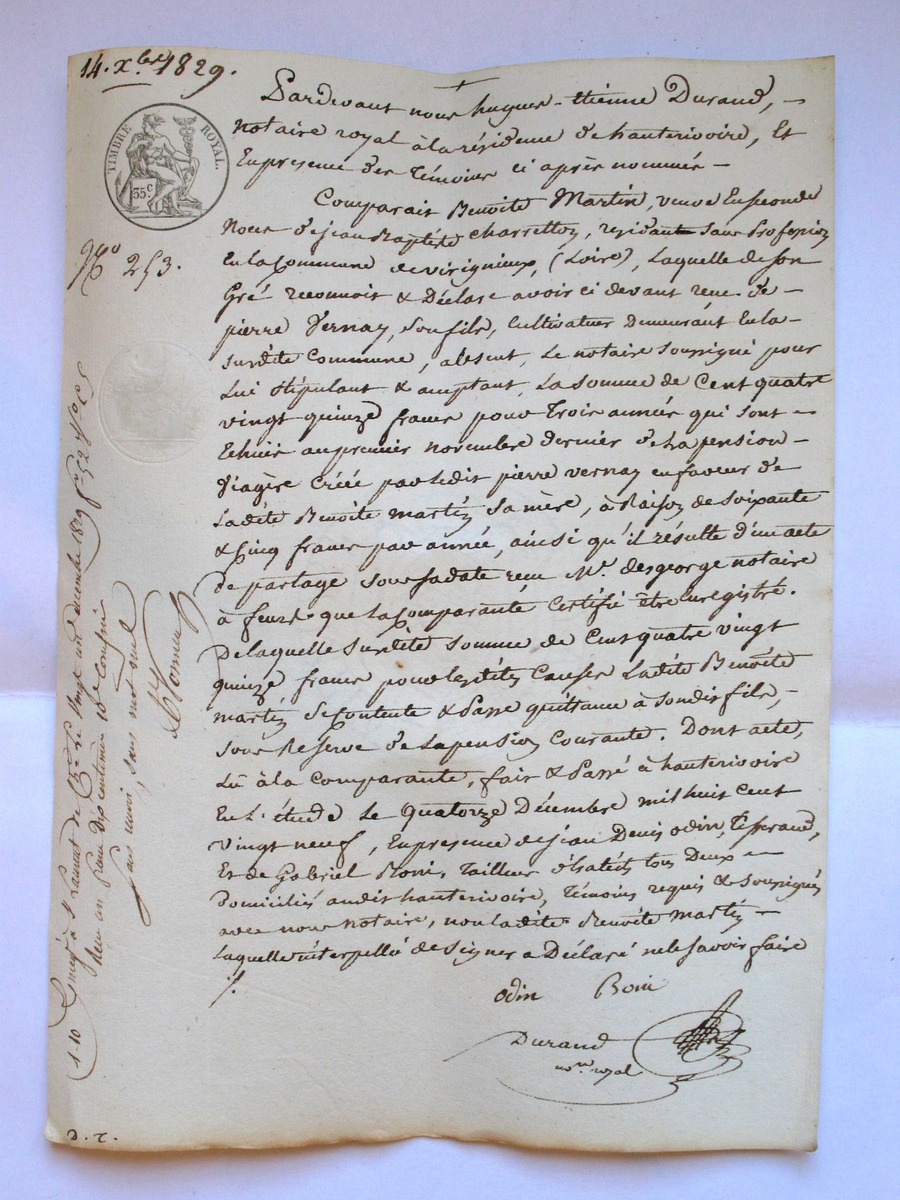 14. Xbre 1829.
TIMBRE ROYAL.
35 c
No 253.
Pardevant nous hugues-étienne Durand, -
notaire royal à la résidence de hauterivoire, Et
En presence des Témoins ci après nommés -
Comparait Benoite Martin, veuve En seconde
Noces de jean Baptiste Charretton, residant sans Profession
En la Commune de virigneux, (Loire), Laquelle de son
Gré reconnoit & Déclare avoir ci devant recu de -
pierre Vernay, son fils, Cultivateur demeurant En la -
susdite Commune, absent, Le notaire soussigné pour
Lui stipulant & acceptant, La somme de Cent quatre
vingt quinze francs pour Trois années qui sont -
Echues au premier novembre dernier de La pension -
Viagère créée par Ledit pierre vernay en faveur de
Ladite Benoite martin sa mère, à Raison de soixante
& Cinq francs par année, ainsi qu'il résulte d'un acte
de partage sous sa date recu Me. desgeorge notaire
à feurs que La Comparante Certifie être Enregistré.
De laquelle susdite somme de Cent quatre vingt
quinze francs pour lesdites Causes Ladite Benoite
martin se Contente & Passe quittance à son dit fils, -
sous Réserve de La pension Courante. Dont acte,
Lu à la comparante, fait & Passé à hauterivoire
En L'étude Le quatorze Décembre mil huit cent
vingt neuf, En presence de jean Denis odin, Tisserand,
Et de Gabriel Boni, Tailleur d'habits tous Deux -
Domiciliés audit hauterivoire, Témoins requis & soussignés
avec nous notaire, non Ladite Benoite martin -
Laquelle interpellée de signer a Déclaré ne le savoir faire
odin Boni
Durand
nore royal
Enregé à St Laurent de Ch. le vingt un decembre 1829 fo 52 Vo C 5
Reçu un franc Dix centimes 10e Compris
sans renvoi, sans mot nul
1-10
D. T.